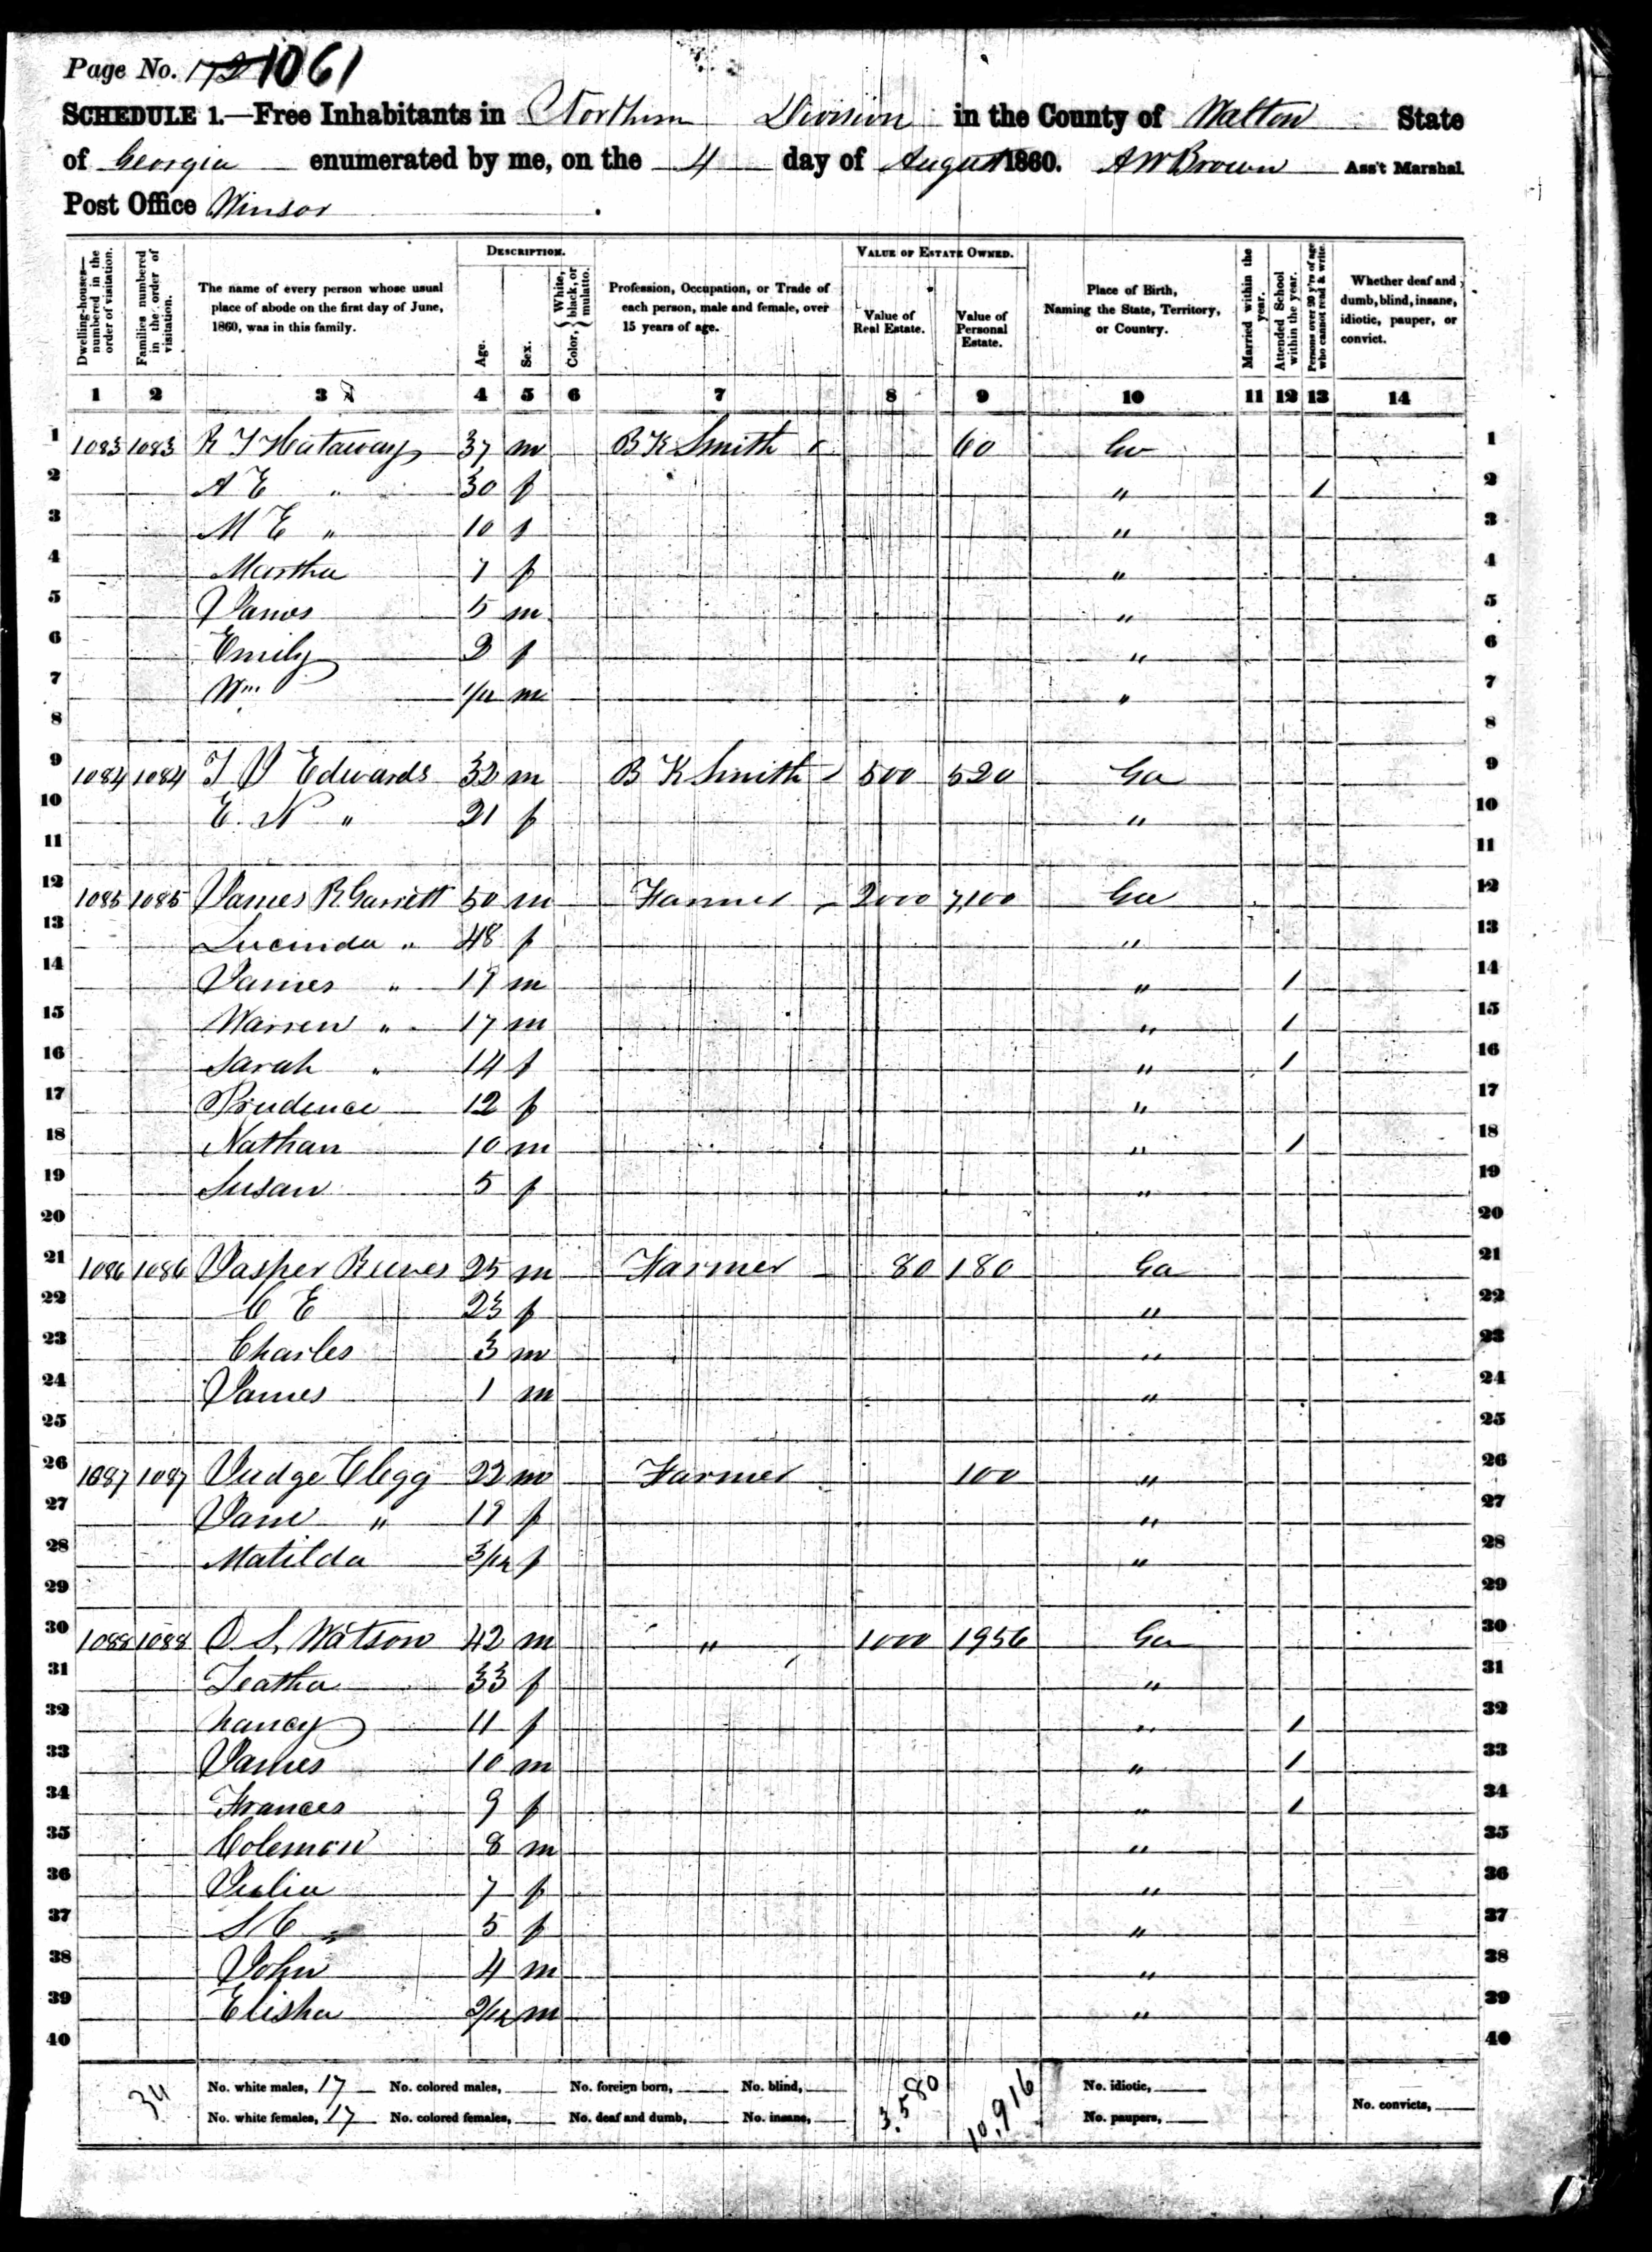 Page No. 172 1061
SCHEDULE 1.—Free Inhabitants in Northern Division in the County of Walton State
of Georgia enumerated by me, on the 4 day of August 1860. A W Brown Ass't Marshal.
Post Office Winsor
Dwelling-houses—numbered in the order of visitation.
Families numbered in the order of visitation.
The name of every person whose usual place of abode on the first day of June, 1860, was in this family.
DESCRIPTION.
Age.
Sex.
Color, { White, black, or mulatto.
Profession, Occupation, or Trade of each person, male and female, over 15 years of age.
VALUE OF ESTATE OWNED.
Value of Real Estate.
Value of Personal Estate.
Place of Birth, Naming the State, Territory, or Country.
Married within the year.
Attended School within the year.
Persons over 20 y'rs of age who cannot read & write.
Whether deaf and dumb, blind, insane, idiotic, pauper, or convict.
1 2 3 4 5 6 7 8 9 10 11 12 13 14
1 1083 1083 R T Hataway 37 m B K Smith 60 Ga 1
2 A E " 30 f " / 2
3 M E " 10 f " 3
4 Martha 7 f " 4
5 James 5 m " 5
6 Emily 2 f " 6
7 Wm 1/12 m " 7
8 8
9 1084 1084 T J Edwards 32 m B K Smith 500 520 Ga 9
10 E. N " 21 f " 10
11 11
12 1085 1085 James R Garrett 50 m Farmer 2000 7,100 Ga 12
13 Lucinda " 48 f " 13
14 James " 19 m " / 14
15 Warren " 17 m " / 15
16 Sarah " 14 f " / 16
17 Prudence 12 f " 17
18 Nathan 10 m " / 18
19 Susan 5 f " 19
20 20
21 1086 1086 Jasper Reeves 25 m Farmer 80 180 Ga 21
22 C E 23 f " 22
23 Charles 3 m " 23
24 James 1 m " 24
25 25
26 1087 1087 Judge Clegg 22 m Farmer 100 " 26
27 Jane " 19 f " 27
28 Matilda 3/12 f " 28
29 29
30 1088 1088 O S, Watson 42 m " 1000 1956 Ga 30
31 Leatha 33 f " 31
32 Nancy 11 f " / 32
33 James 10 m " / 33
34 Frances 9 f " / 34
35 Coleman 8 m " 35
36 Julia 7 f " 36
37 S C " 5 f " 37
38 John 4 m " 38
39 Elisha 2/12 m " 39
40 40
34 No. white males, 17 No. colored males, No. foreign born, No. blind, 3,580 10,916 No. idiotic,
No. white females, 17 No. colored females, No. deaf and dumb, No. insane, No. paupers, No. convicts,